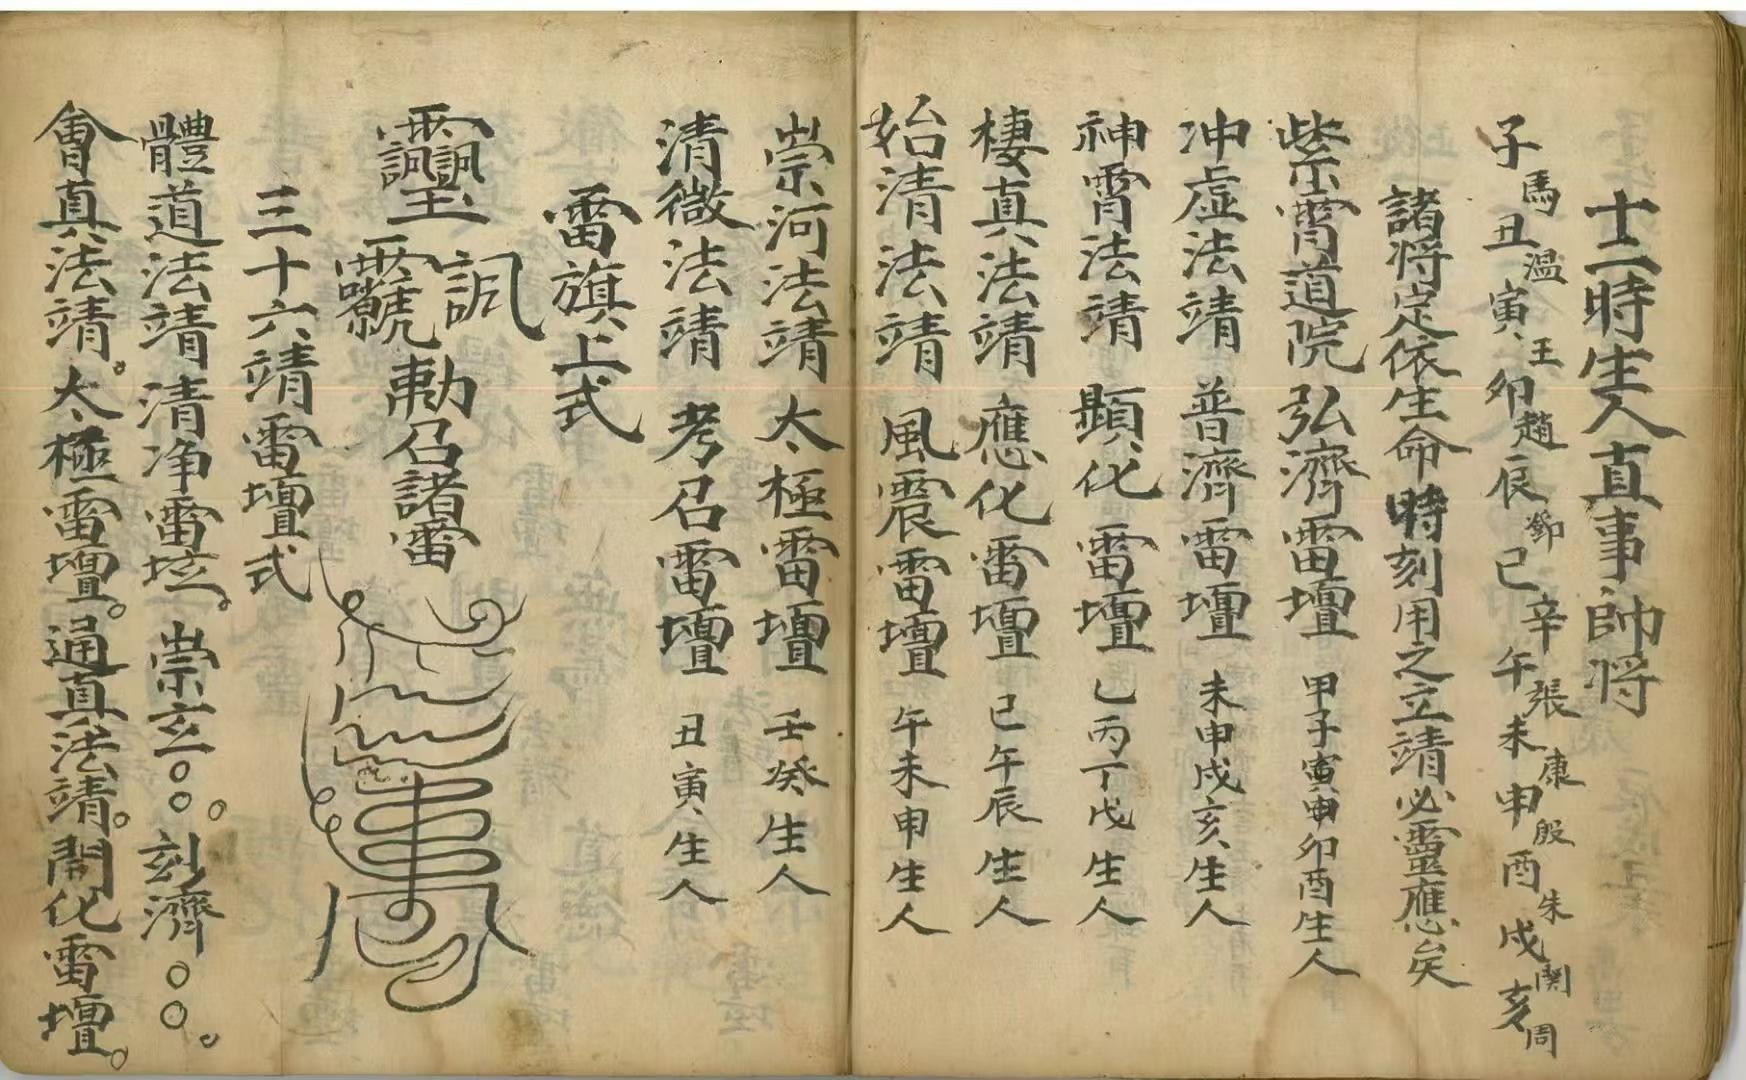 十二時生人直事帥将
子馬丑温寅王卯趙辰鄧巳辛午張未康申殷酉朱戌關亥周
諸将定依生命時刻用之立靖必靈應矣
紫霄道院 弘濟雷壇 甲子寅申卯酉生人
冲虛法靖 普濟雷壇 未申戌亥生人
神霄法靖 顯化雷壇 乙丙丁戊生人
棲真法靖 應化雷壇 己午辰生人
始清法靖 風震雷壇 午未申生人
崇河法靖 太極雷壇 壬癸生人
清微法靖 考召雷壇 丑寅生人
雷旗上式
勅召諸雷
三十六靖雷壇式
體道法靖清净雷坛。崇玄○○。刻濟○○。
會真法靖。太極雷壇。通真法靖。開化雷壇。